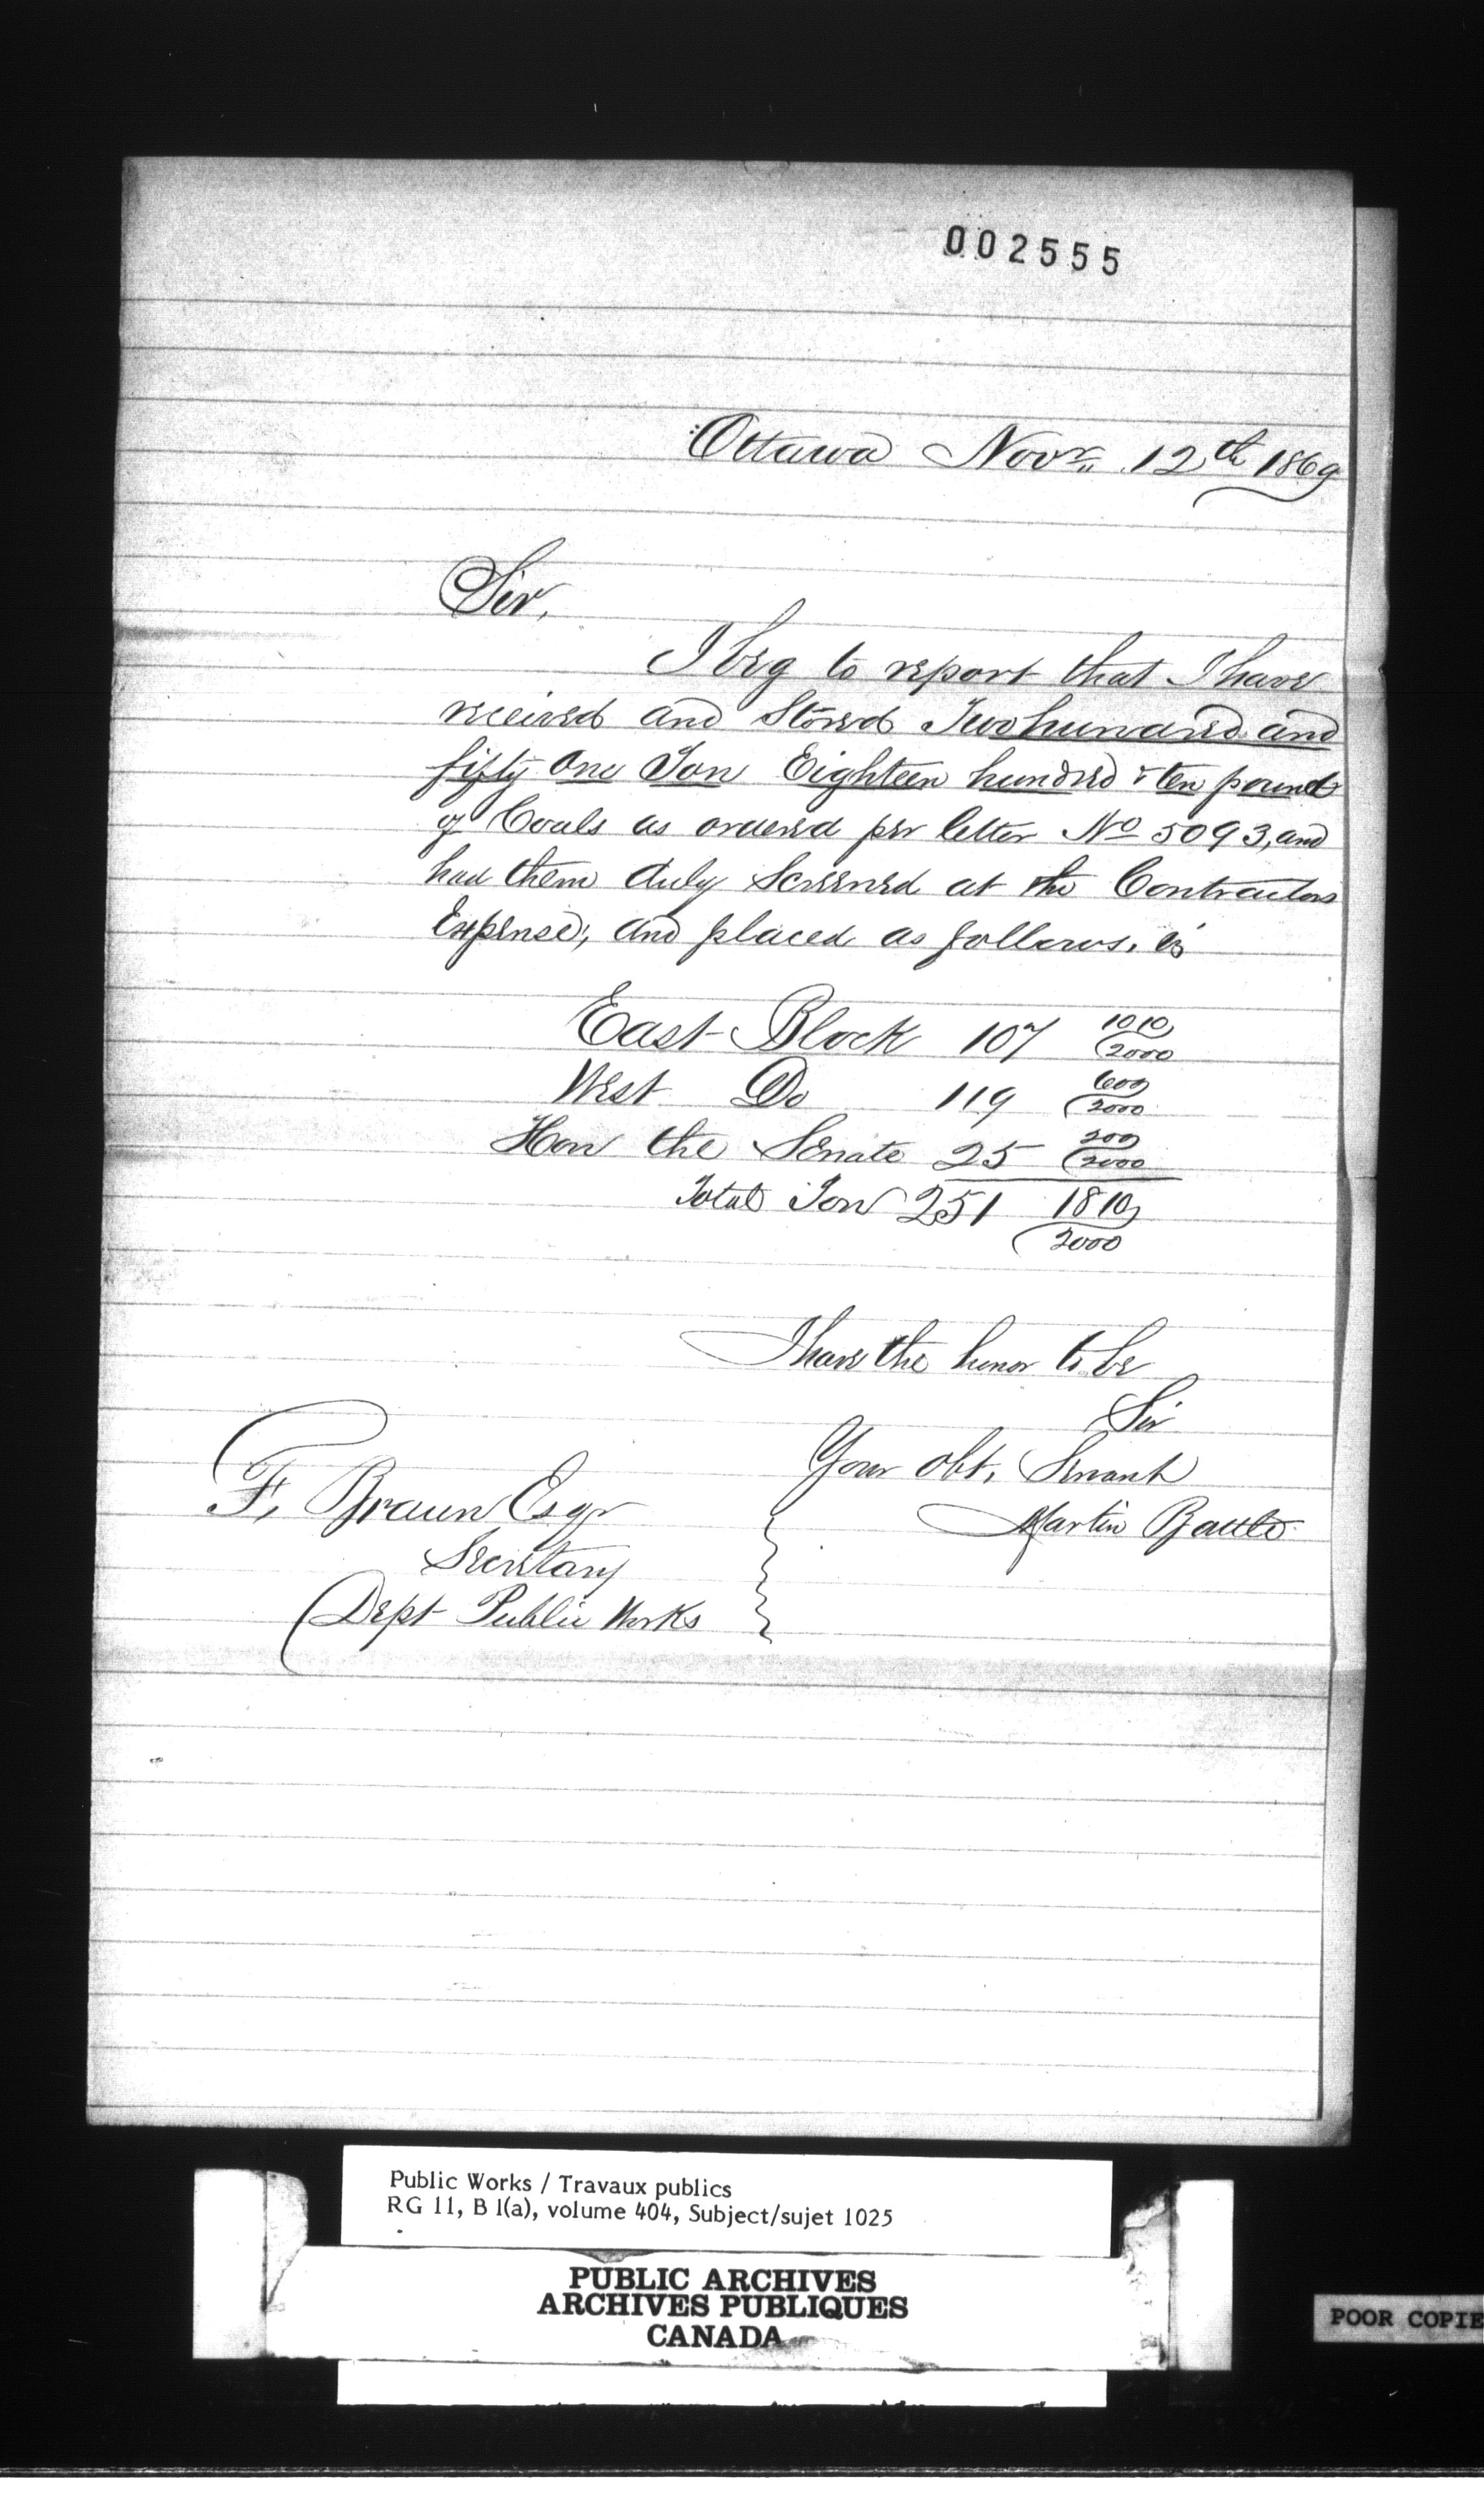 002555
Ottawa Novr. 12th 1869
Sir,
I beg to report that I have
received and Stored Two hundred and
fifty One Ton Eighteen hundred & ten pound
of Coals as ordered per letter No 5093, and
had them duly Screened at the Contractors
Expense; and placed as follows.
East Block 107 1010/2000
West Do 119 600/2000
Hon the Senate 25 200/2000
Total Ton 251 1810/2000
I have the honor to be
Sir
Your Obt. Servant
Martin
F. Braun Esqr
Secretary
Dept Public Works
Public Works / Travaux publics
RG 11, B 1(a), volume 404, Subject/sujet 1025
PUBLIC ARCHIVES
ARCHIVES PUBLIQUES
CANADA
POOR COPIE